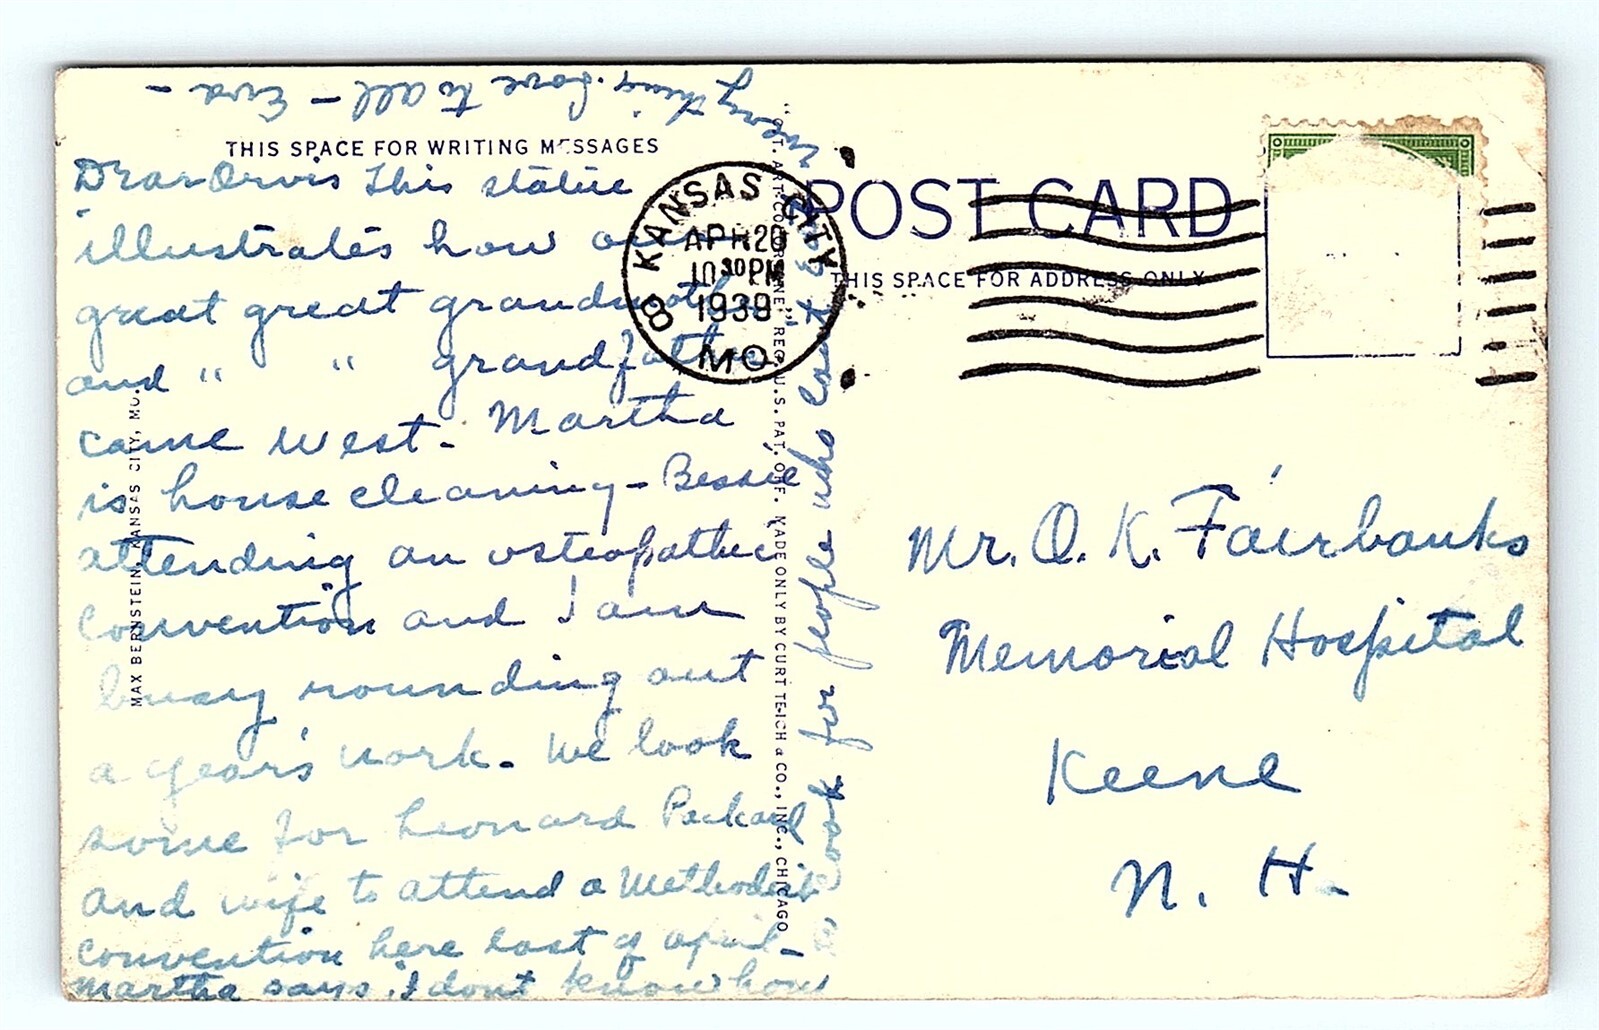 THIS SPACE FOR WRITING MESSAGES
Dear Orvis This statue
illustrates how our
great great grandmother
and " " grandfather
came west - Martha
is house cleaning - Bessie
attending an osteopathic
convention and I am
busy rounding out
a year's work. We look
some for Leonard Packard
and wife to attend a Methodist
convention here last of April -
Martha says, I dont know how
to cook for people who cant eat
everything. Love to all - Eva -
KANSAS CITY
APR 20
10 30 PM
1939
MO.
8
POST CARD
THIS SPACE FOR ADDRESS ONLY
Mr. O. K. Fairbanks
Memorial Hospital
Keene
N. H.
MAX BERNSTEIN, KANSAS CITY, MO.
"C.T. ART-COLORTONE" REG. U.S. PAT. OFF. MADE ONLY BY CURT TEICH & CO., INC., CHICAGO